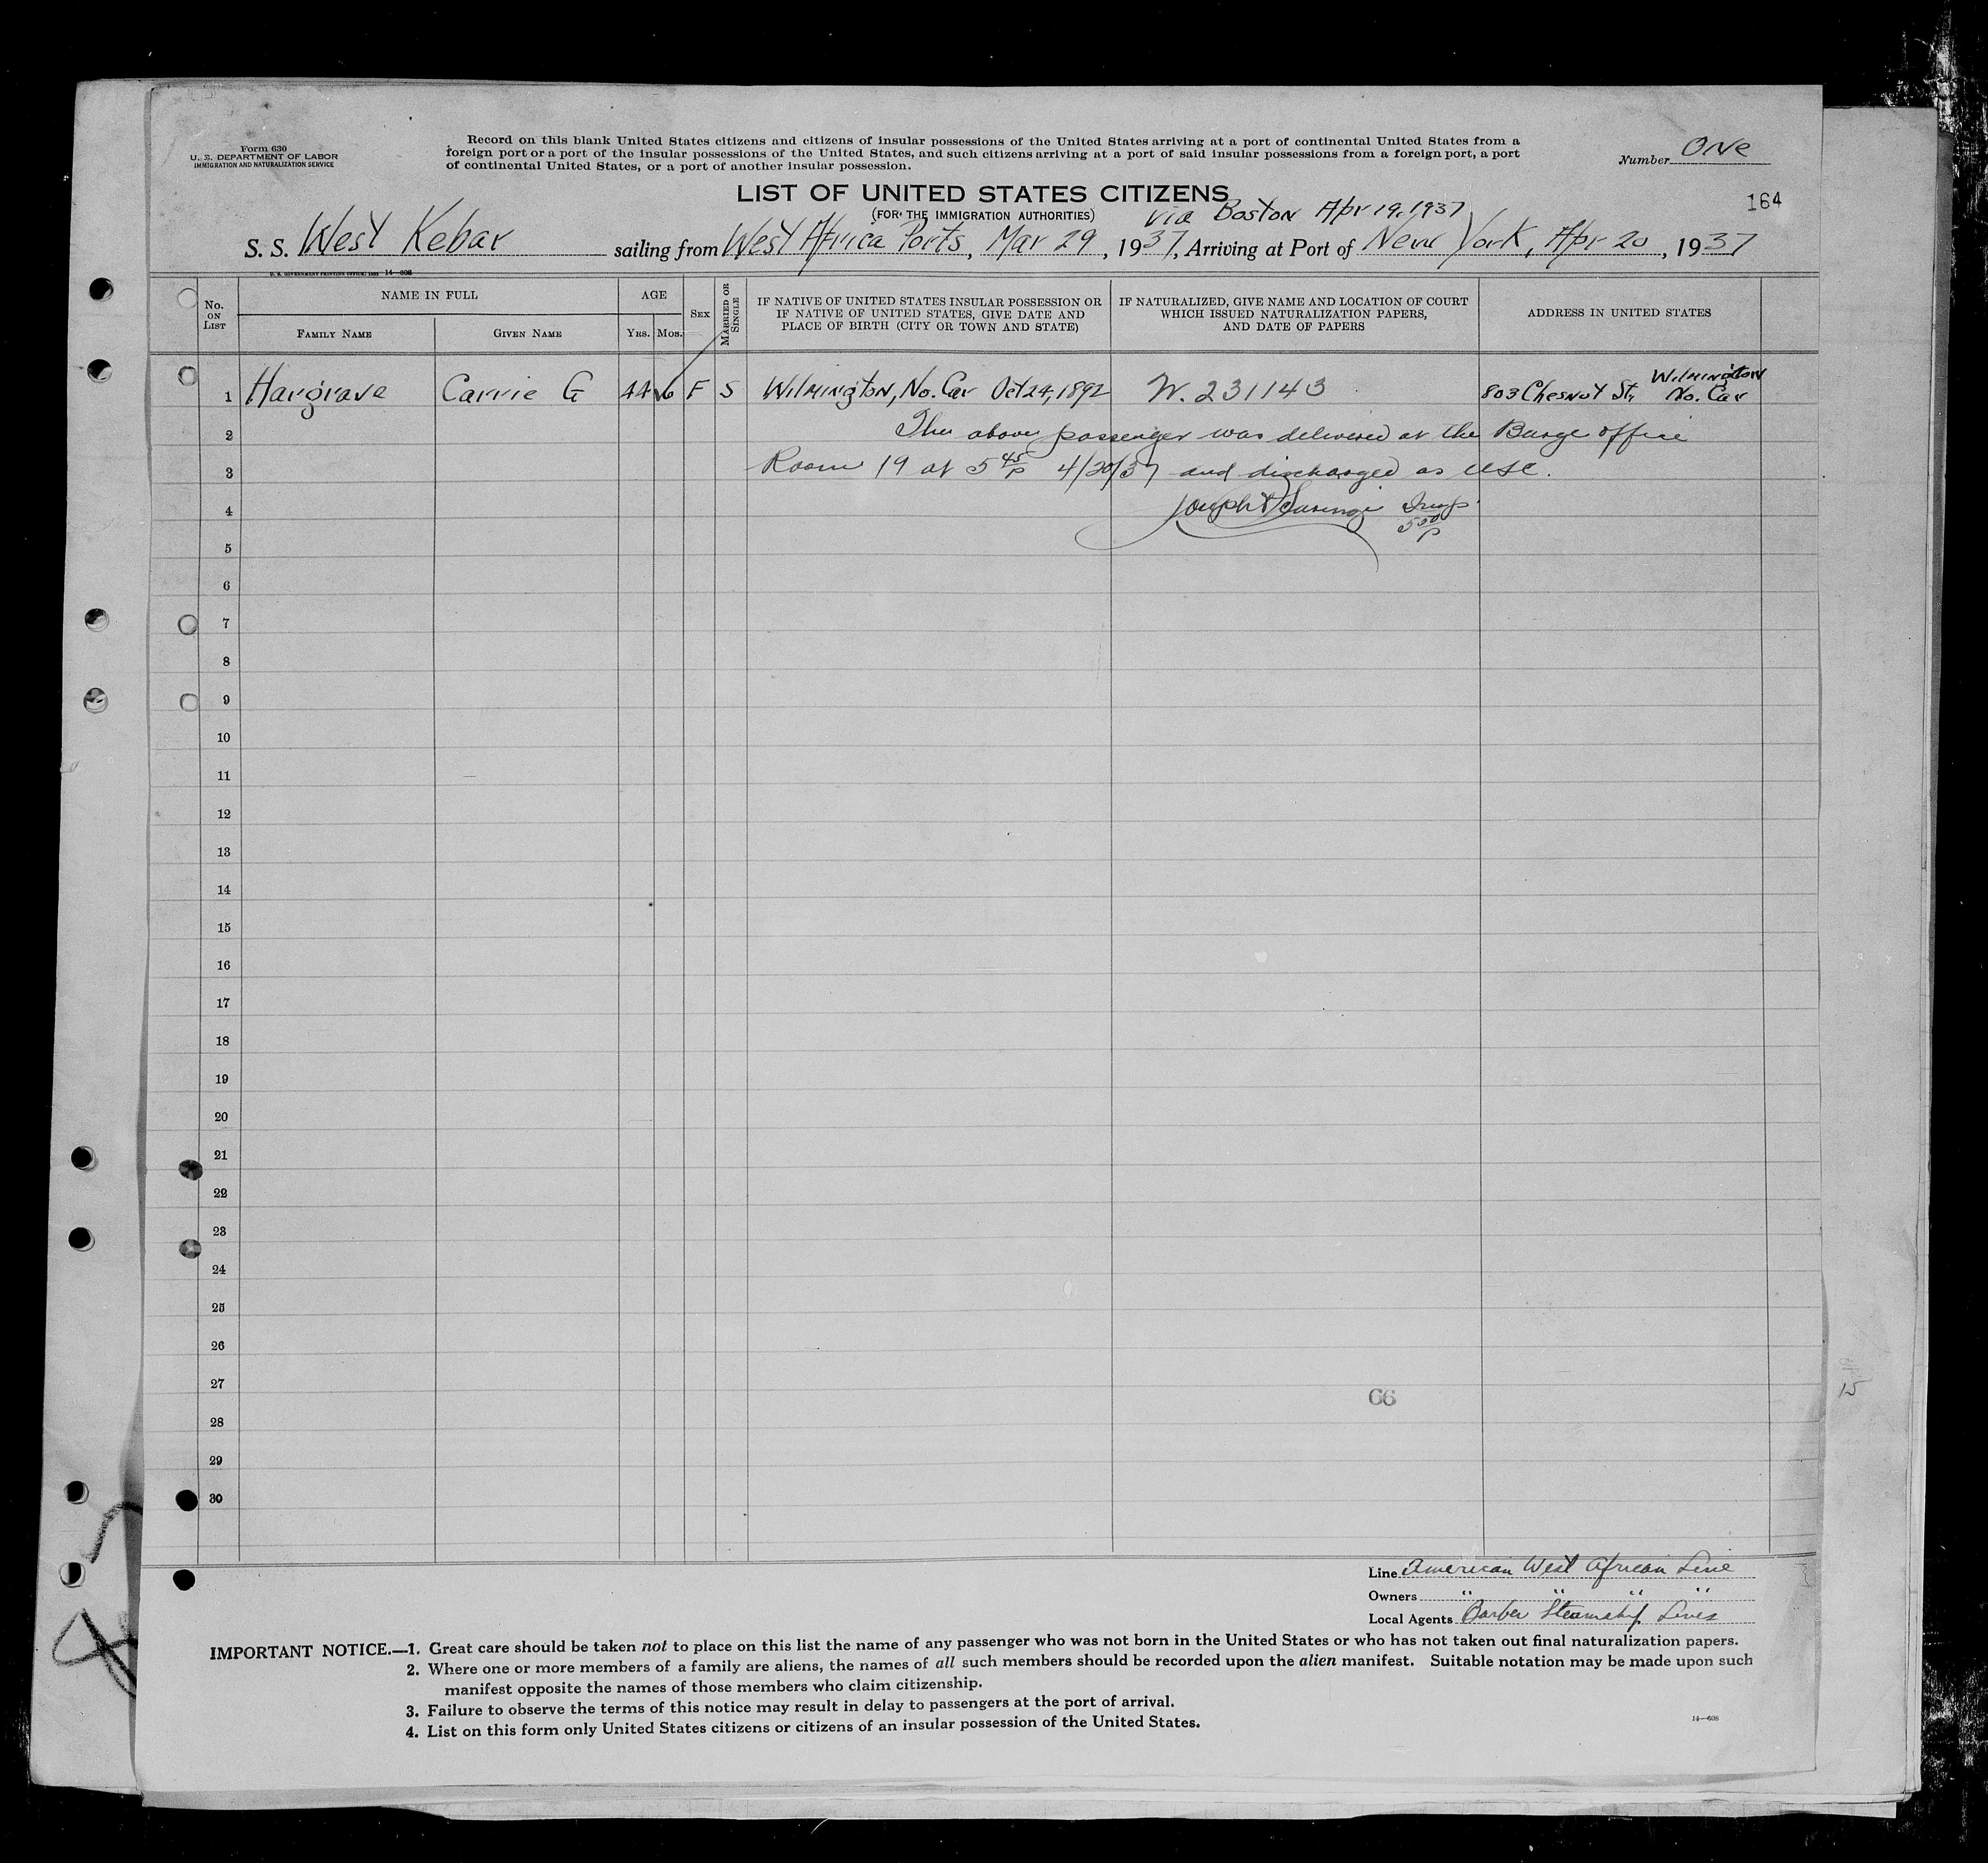 Form 630
U. S. DEPARTMENT OF LABOR
IMMIGRATION AND NATURALIZATION SERVICE
Record on this blank United States citizens and citizens of insular possessions of the United States arriving at a port of continental United States from a
foreign port or a port of the insular possessions of the United States, and such citizens arriving at a port of said insular possessions from a foreign port, a port
of continental United States, or a port of another insular possession.
Number One
LIST OF UNITED STATES CITIZENS
(FOR THE IMMIGRATION AUTHORITIES)
164
via Boston Apr 19, 1937
S. S. West Kebar sailing from West Africa Ports, Mar 29, 1937, Arriving at Port of New York, Apr 20, 1937
U. S. GOVERNMENT PRINTING OFFICE: 1933 14—608
No. ON LIST
NAME IN FULL
FAMILY NAME
GIVEN NAME
AGE
YRS. MOS.
SEX
MARRIED OR SINGLE
IF NATIVE OF UNITED STATES INSULAR POSSESSION OR
IF NATIVE OF UNITED STATES, GIVE DATE AND
PLACE OF BIRTH (CITY OR TOWN AND STATE)
IF NATURALIZED, GIVE NAME AND LOCATION OF COURT
WHICH ISSUED NATURALIZATION PAPERS,
AND DATE OF PAPERS
ADDRESS IN UNITED STATES
1 Hargrave Carrie G 44 6 F S Wilmington, No. Car Oct 24, 1892 W. 231143 803 Chesnut St, Wilmington No. Car
2 The above passenger was delivered at the Barge office
3 Room 19 at 5 45 P 4/20/37 and discharged as USC.
4 Joseph Insp
5 50 P
5
6
7
8
9
10
11
12
13
14
15
16
17
18
19
20
21
22
23
24
25
26
27
66
15
28
29
30
Line American West African Line
Owners " " " "
Local Agents Barber Steamship Lines
IMPORTANT NOTICE.—1. Great care should be taken not to place on this list the name of any passenger who was not born in the United States or who has not taken out final naturalization papers.
2. Where one or more members of a family are aliens, the names of all such members should be recorded upon the alien manifest. Suitable notation may be made upon such
manifest opposite the names of those members who claim citizenship.
3. Failure to observe the terms of this notice may result in delay to passengers at the port of arrival.
4. List on this form only United States citizens or citizens of an insular possession of the United States.
14—608